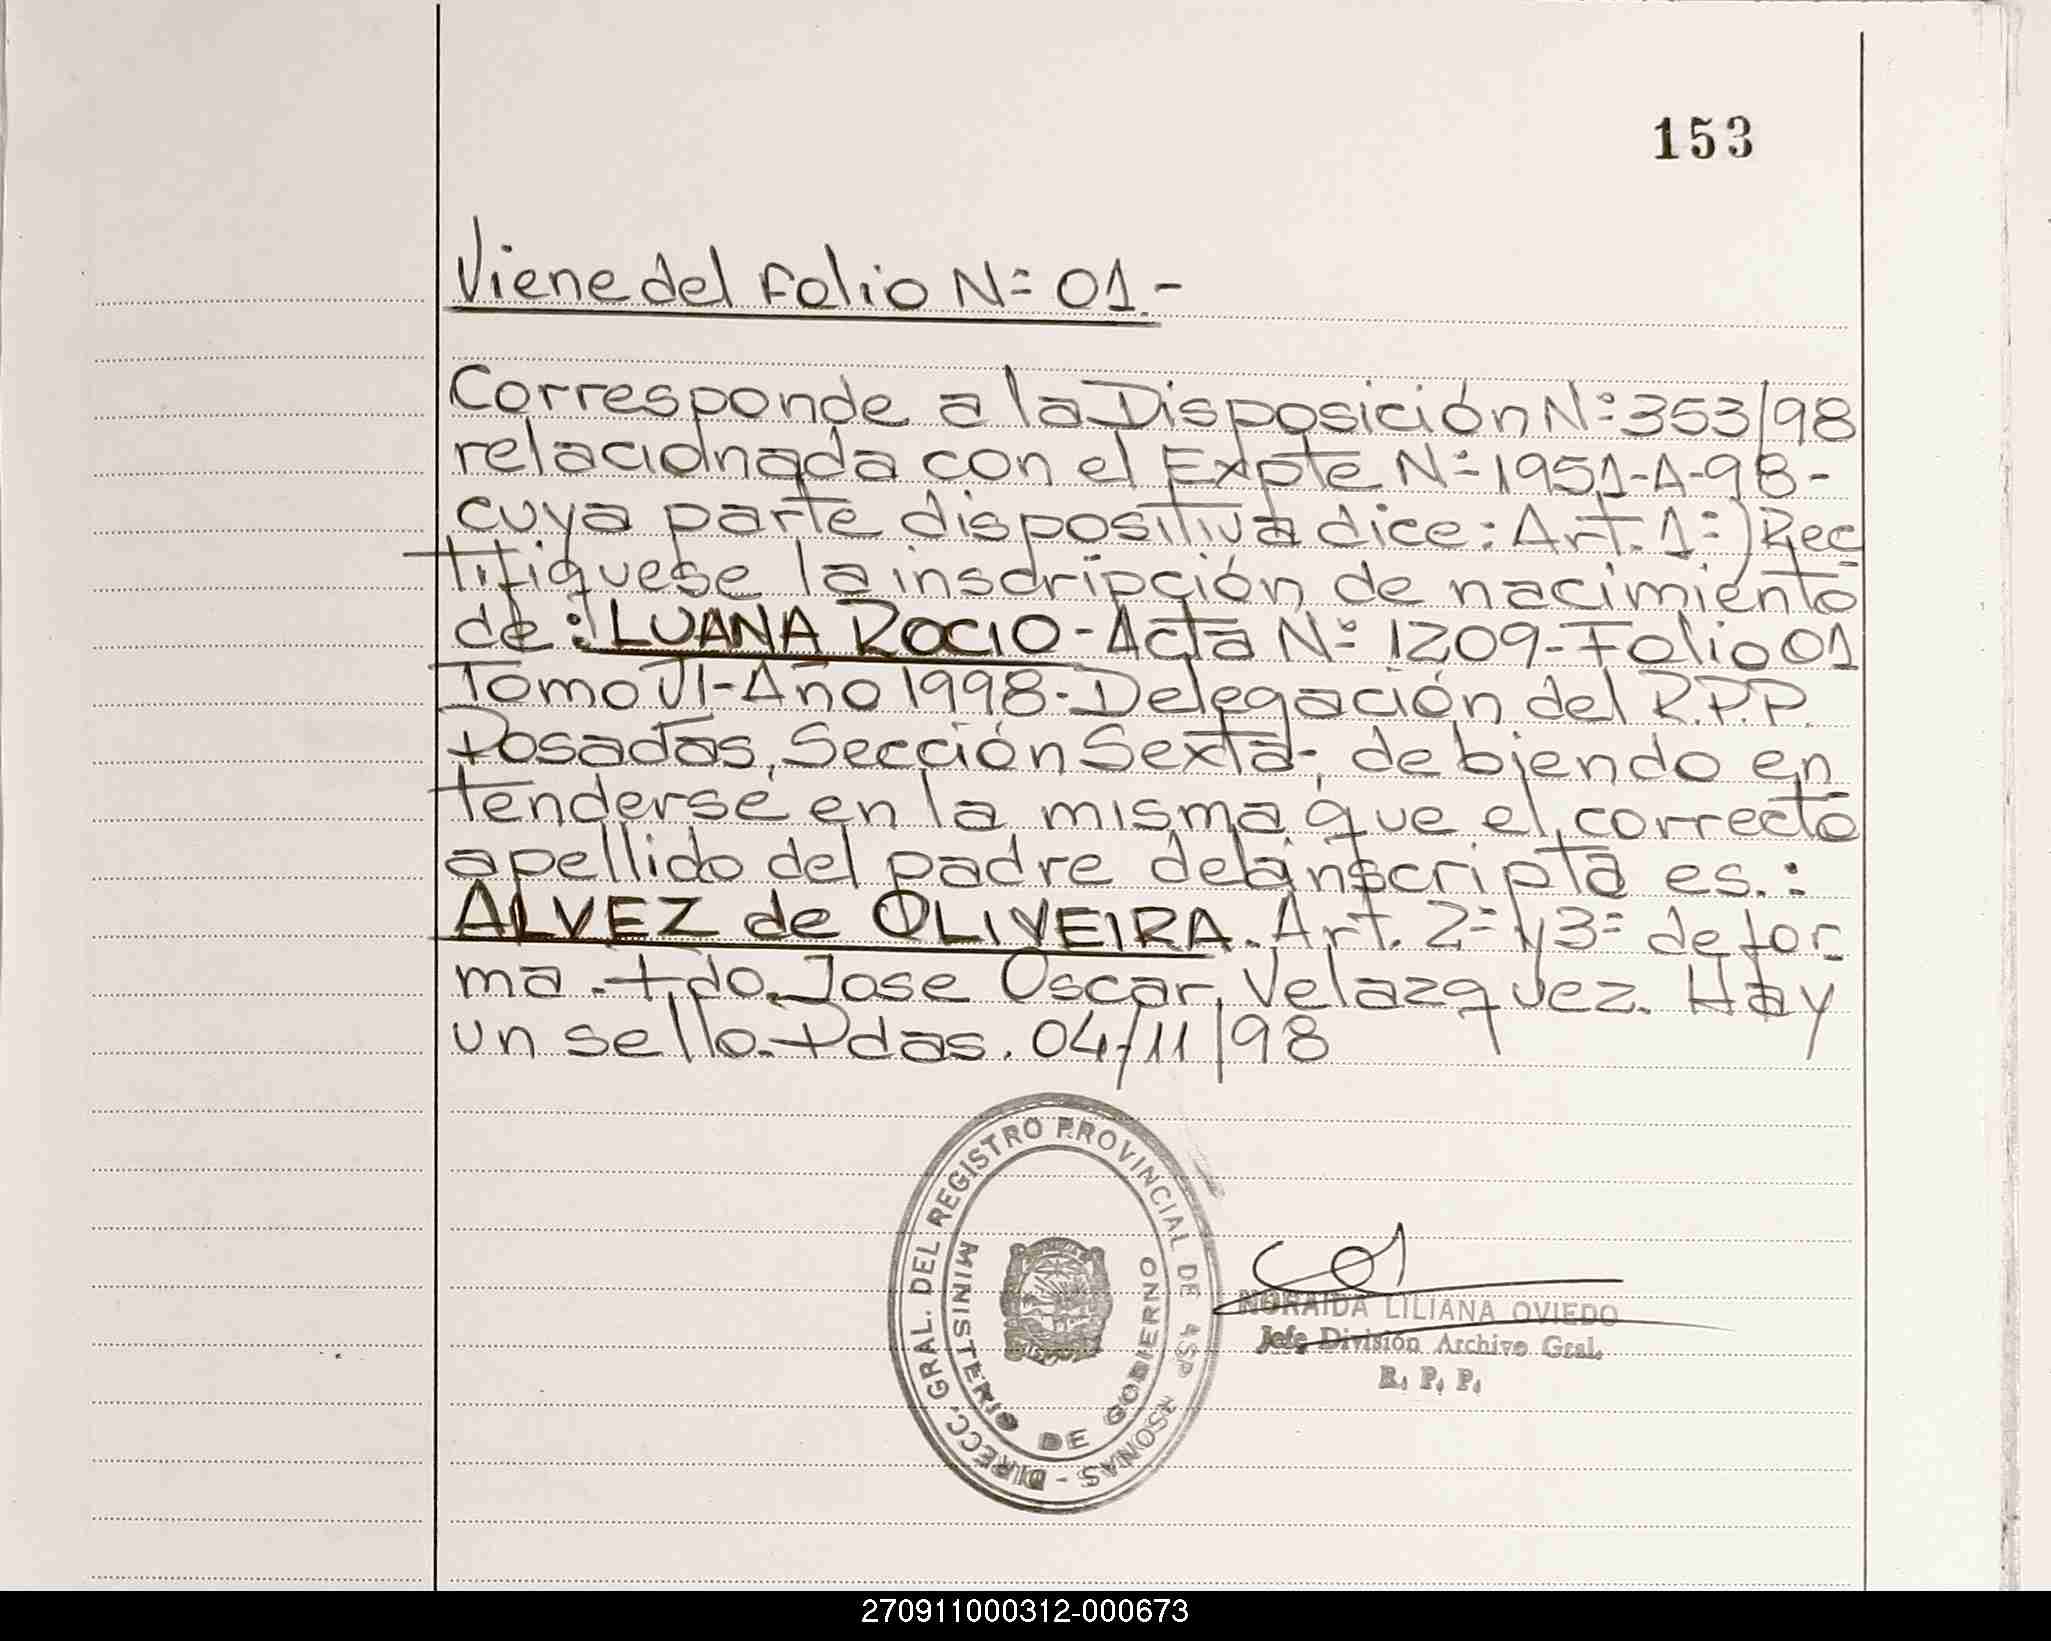 153
Viene del Folio Nº 01.-
Corresponde a la Disposición Nº 353/98
relacionada con el Expte Nº 1951-A-98-
cuya parte dispositiva dice: Art. 1º) Rec
tifiquese la inscripción de nacimiento
de: LUANA ROCIO - Acta Nº 1209 - Folio 01
Tomo VI - Año 1998 - Delegación del R.P.P.
Posadas, Sección Sexta-, debiendo en
tenderse en la misma que el correcto
apellido del padre de la inscripta es.:
ALVEZ de OLIVEIRA. Art. 2º y 3º de for
ma. Fdo. Jose Oscar Velazquez. Hay
un sello. Pdas. 04/11/98
DIRECC. GRAL. DEL REGISTRO PROVINCIAL DE
MINISTERIO DE GOBIERNO
NORAIDA LILIANA OVIEDO
Jefe División Archivo Gral.
R. P. P.
270911000312-000673